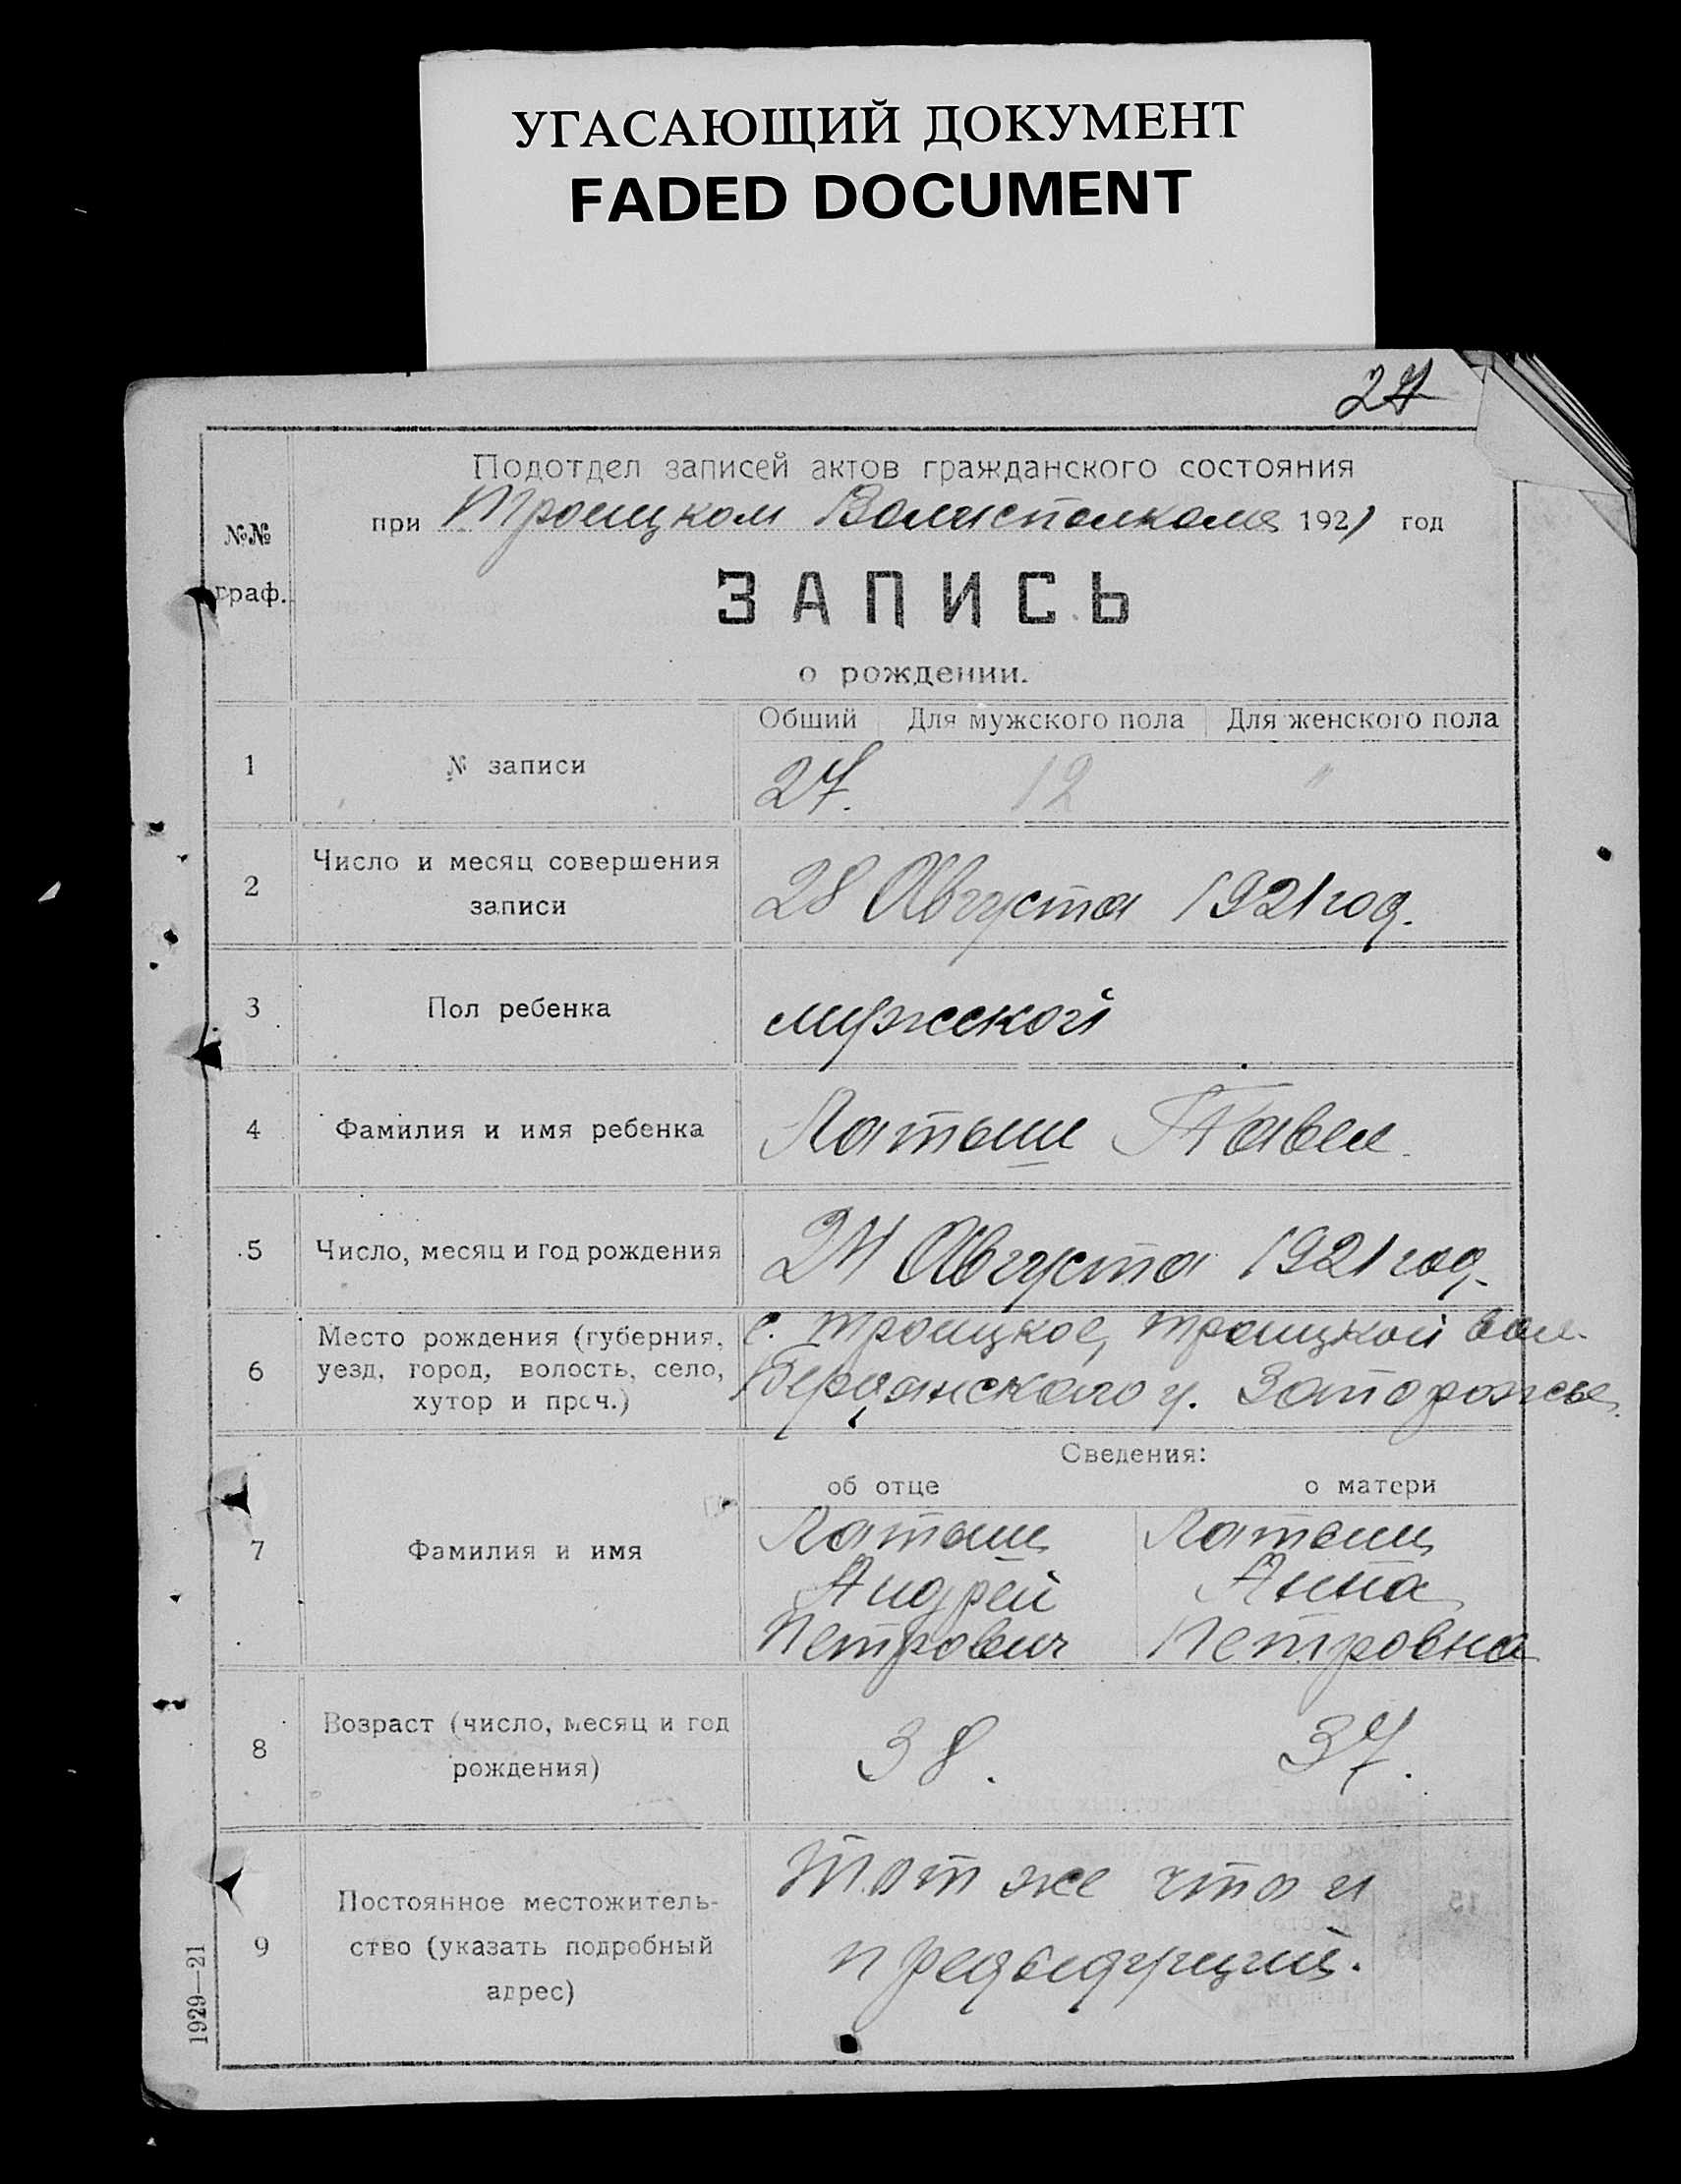 УГАСАЮЩИЙ ДОКУМЕНТ
FADED DOCUMENT
27
Подотдел записей актов гражданского состояния
при Троицком Волисполкоме 1921 год
№№
граф.
ЗАПИСЬ
о рождении.
Общий Для мужского пола Для женского пола
1 № записи 27. 12 "
2 Число и месяц совершения
записи 28 Августа 1921 год.
3 Пол ребенка мужской
4 Фамилия и имя ребенка Латыш Павел.
5 Число, месяц и год рождения 24 Августа 1921 год.
6 Место рождения (губерния,
уезд, город, волость, село,
хутор и проч.)
с. Троицкое, Троицкой вол.
Бердянского у. Запорожье.
Сведения:
об отце о матери
7 Фамилия и имя
Латыш Латыш
Андрей Анна
Петрович Петровна
8 Возраст (число, месяц и год
рождения) 38. 37.
9 Постоянное местожитель-
ство (указать подробный
адрес)
Тот же что и
предыдущий.
1929—21